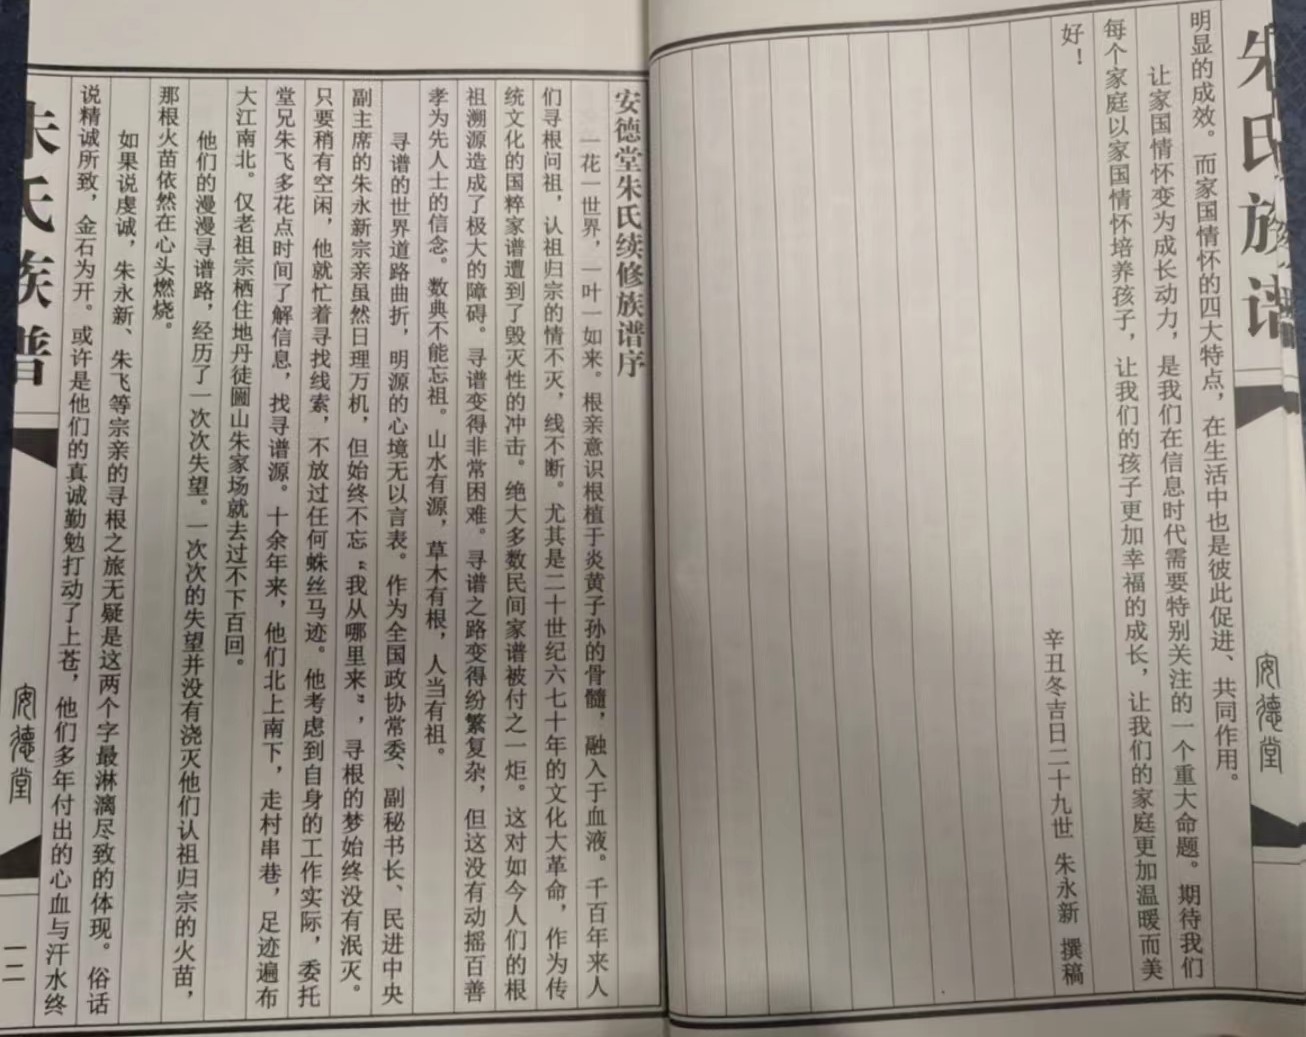 朱氏族谱
安德堂
明显的成效。而家国情怀的四大特点，在生活中也是彼此促进、共同作用。
让家国情怀变为成长动力，是我们在信息时代需要特别关注的一个重大命题。期待我们
每个家庭以家国情怀培养孩子，让我们的孩子更加幸福的成长，让我们的家庭更加温暖而美
好！
辛丑冬吉日二十九世 朱永新 撰稿
安德堂朱氏续修族谱序
一花一世界，一叶一如来。根亲意识根植于炎黄子孙的骨髓，融入于血液。千百年来人
们寻根问祖，认祖归宗的情不灭，线不断。尤其是二十世纪六七十年的文化大革命，作为传
统文化的国粹家谱遭到了毁灭性的冲击。绝大多数民间家谱被付之一炬。这对如今人们的根
祖溯源造成了极大的障碍。寻谱变得非常困难。寻谱之路变得纷繁复杂，但这没有动摇百善
孝为先人士的信念。数典不能忘祖。山水有源，草木有根，人当有祖。
寻谱的世界道路曲折，明源的心境无以言表。作为全国政协常委、副秘书长、民进中央
副主席的朱永新宗亲虽然日理万机，但始终不忘“我从哪里来”，寻根的梦始终没有泯灭。
只要稍有空闲，他就忙着寻找线索，不放过任何蛛丝马迹。他考虑到自身的工作实际，委托
堂兄朱飞多花点时间了解信息，找寻谱源。十余年来，他们北上南下，走村串巷，足迹遍布
大江南北。仅老祖宗栖住地丹徒圌山朱家场就去过不下百回。
他们的漫漫寻谱路，经历了一次次失望。一次次的失望并没有浇灭他们认祖归宗的火苗，
那根火苗依然在心头燃烧。
如果说虔诚，朱永新、朱飞等宗亲的寻根之旅无疑是这两个字最淋漓尽致的体现。俗话
说精诚所致，金石为开。或许是他们的真诚勤勉打动了上苍，他们多年付出的心血与汗水终
朱氏族谱
安德堂
一二